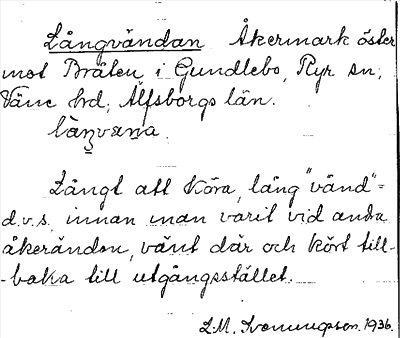 Långvändan Åkermark öster
mot Bråten i Gundlebo, Ryr sn;
Väne hd; Älfsborgs län.
Långt att köra, lång "vänd"=
d.v.s. innan man varit vid andra
åkerändan, vänt där och kört till-
-baka till utgångsstället.
L.M. 1936.